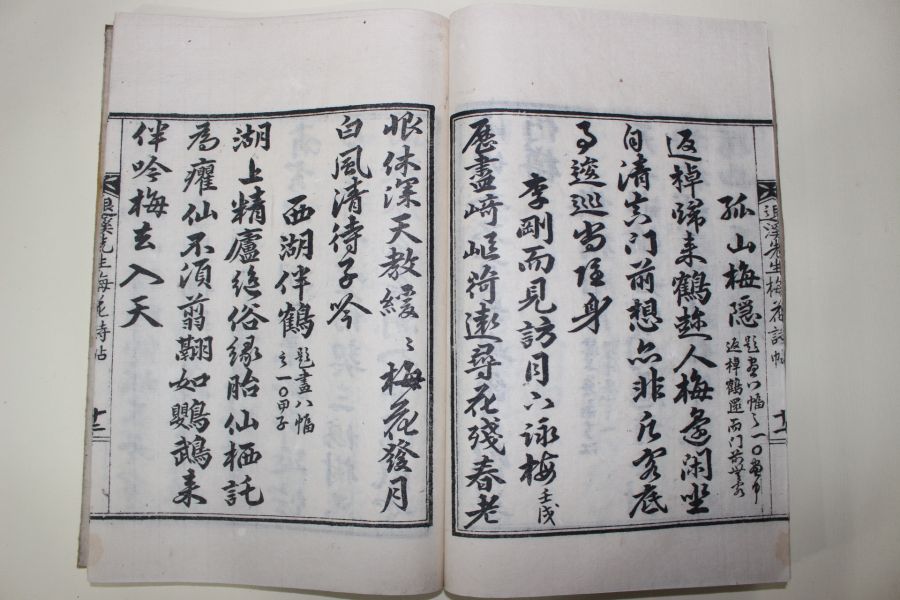 退溪先生梅花詩帖
十一
孤山梅隱
題畫八幅之一〇畫中
返棹鶴還而門前無客
返棹歸来鶴趂人梅邊閑坐
自清真門前想亦非凡客底
事逡巡尚隱身
李剛而見訪月下詠梅壬戌
歷盡崎嶇荷遠尋花殘春老
恨休深天教緩〻梅花發月
白風清待子吟
西湖伴鶴
題畫八幅
之一〇甲子
湖上精廬絶俗緣胎仙栖託
為癯仙不須翦翮如鸚鵡来
伴吟梅去入天
退溪先生梅花詩帖
十二